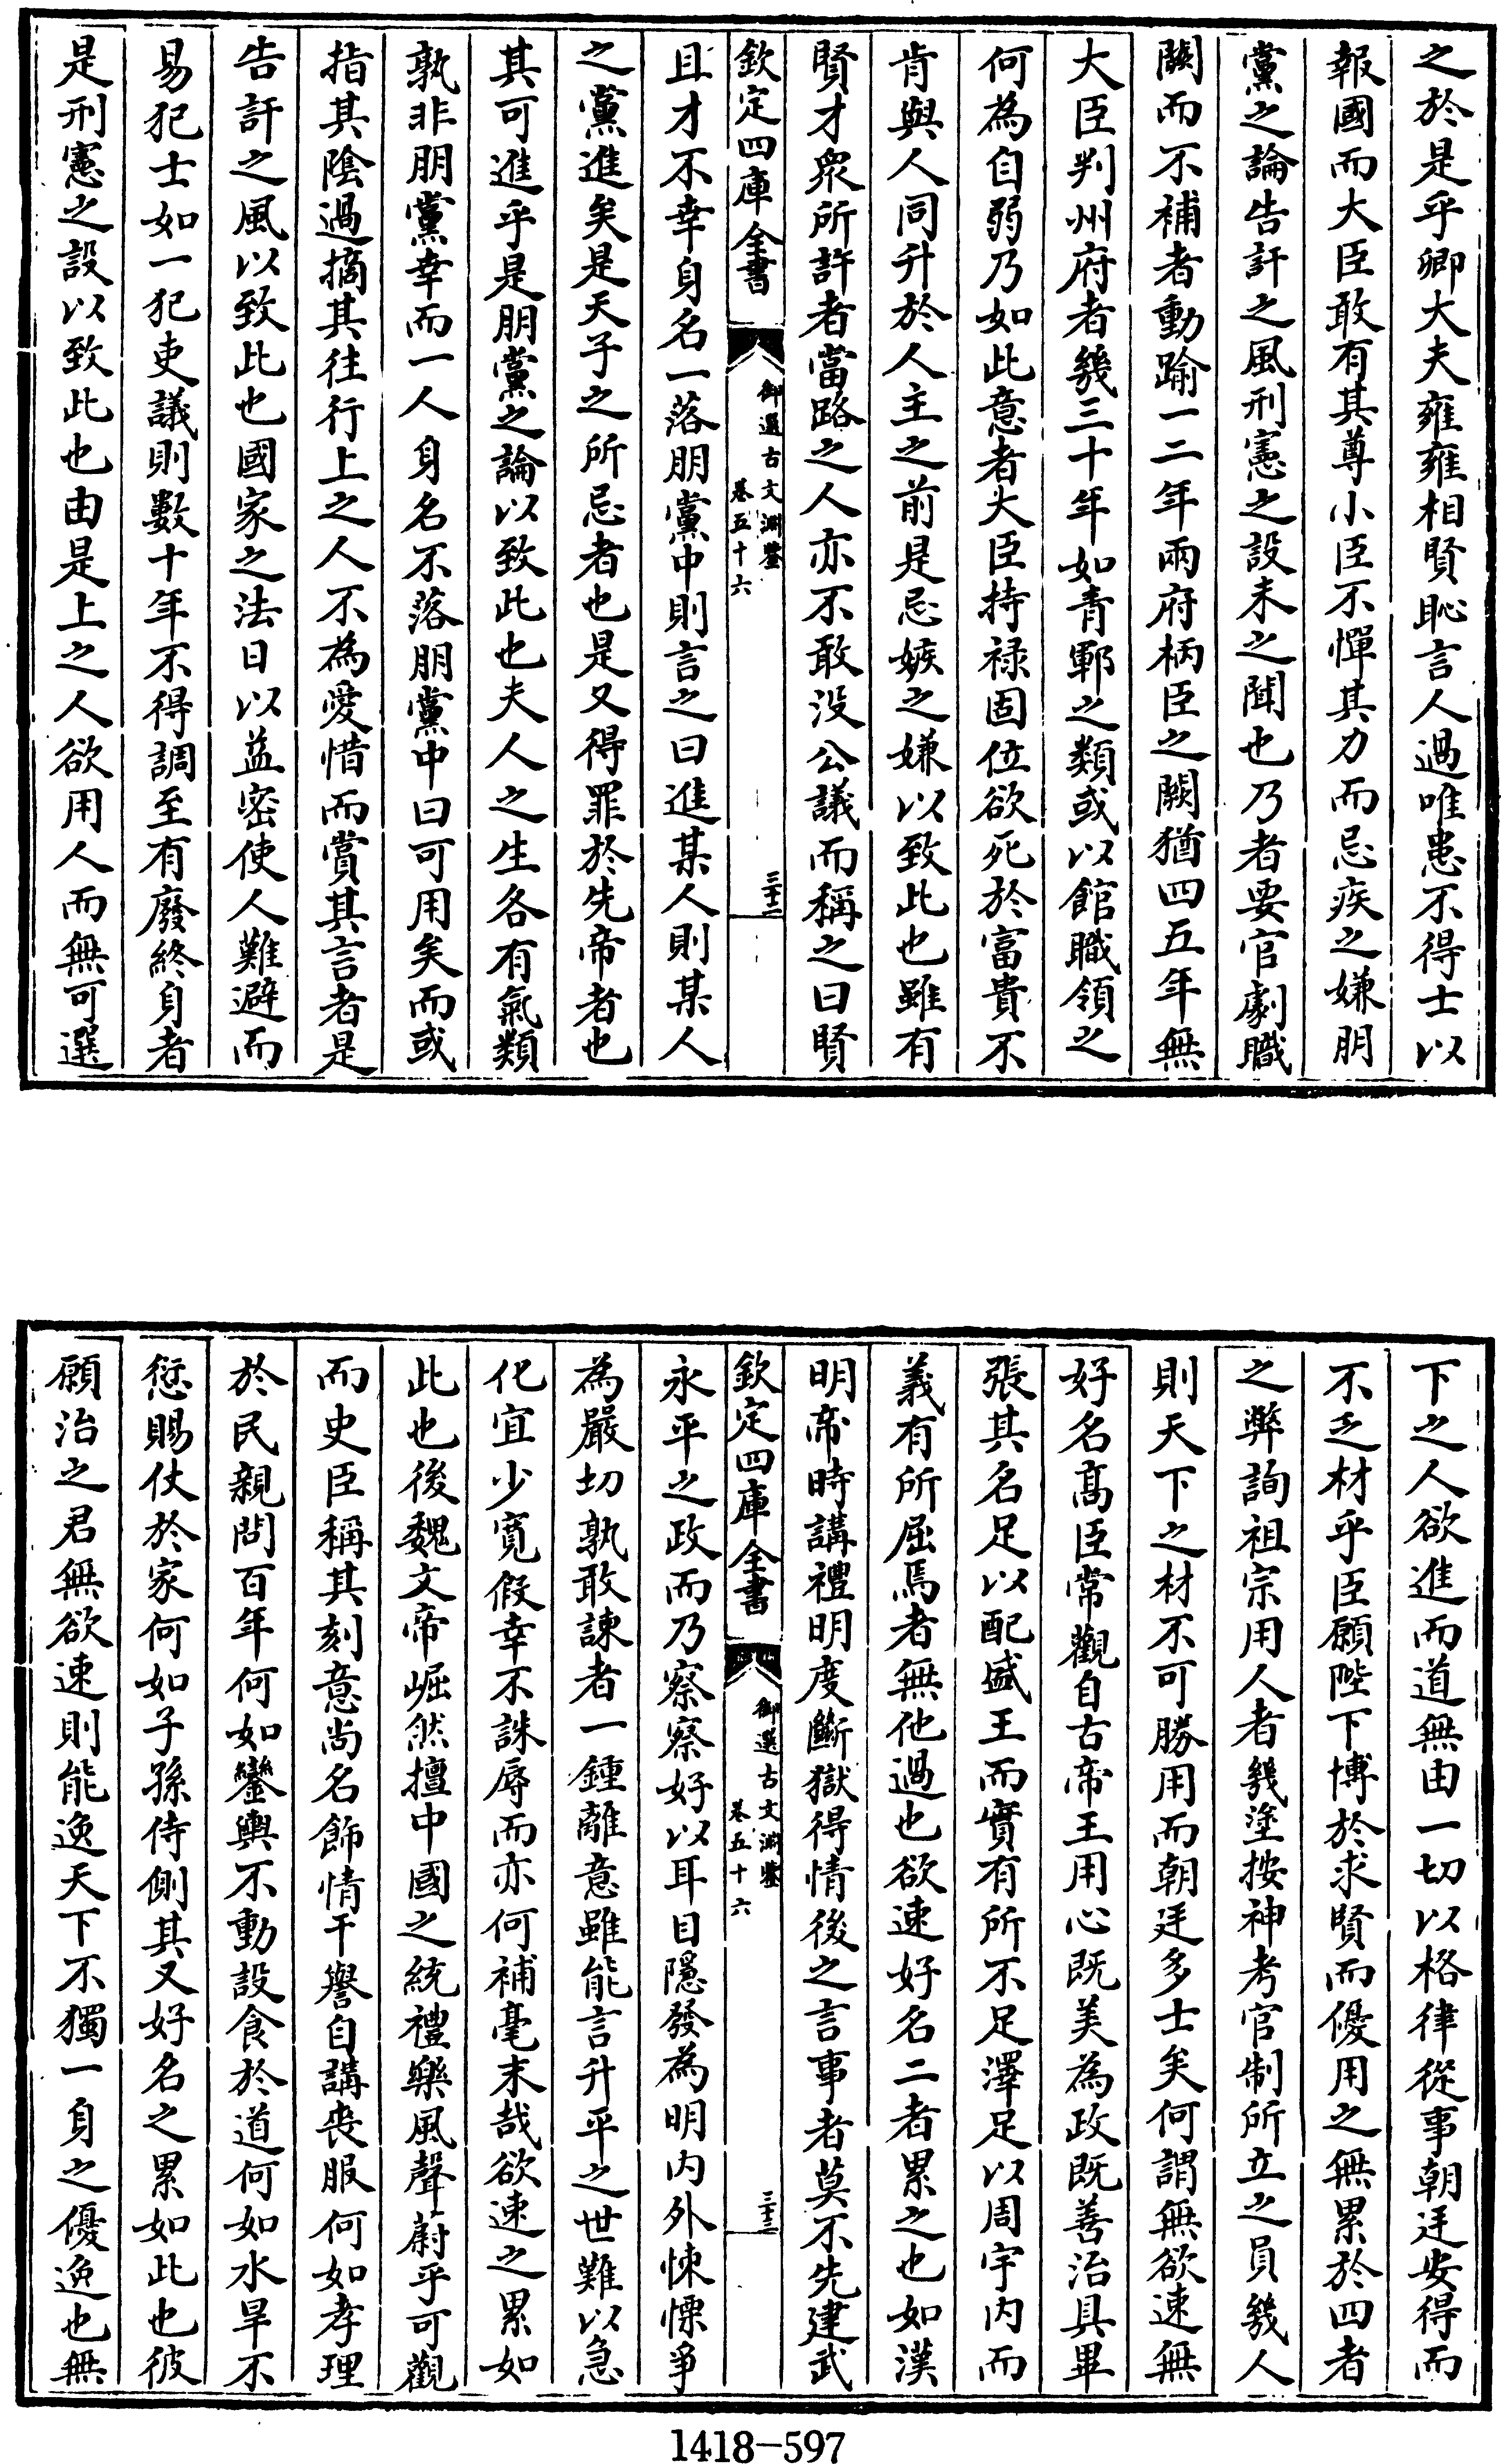 之於是乎卿大夫雍雍相賢恥言人過唯患不得士以
報國而大臣敢有其尊小臣不憚其力而忌疾之嫌朋
黨之論告訐之風刑憲之設未之聞也乃者要官劇職
闕而不補者動踰一二年兩府柄臣之闕猶四五年無
大臣判州府者幾三十年如青鄆之類或以館職領之
何為自弱乃如此意者大臣持祿固位欲死於富貴不
肯與人同升於人主之前是忌嫉之嫌以致此也雖有
賢才衆所許者當路之人亦不敢没公議而稱之曰賢
欽定四庫全書
御選古文淵鑒
卷五十六
三十二
且才不幸身名一落朋黨中則言之曰進某人則某人
之黨進矣是天子之所忌者也是又得罪於先帝者也
其可進乎是朋黨之論以致此也夫人之生各有氣類
孰非朋黨幸而一人身名不落朋黨中曰可用矣而或
指其陰過摘其往行上之人不為愛惜而賞其言者是
告訐之風以致此也國家之法日以益密使人難避而
易犯士如一犯吏議則數十年不得調至有廢終身者
是刑憲之設以致此也由是上之人欲用人而無可選
下之人欲進而道無由一切以格律從事朝廷安得而
不乏材乎臣願陛下博於求賢而優用之無累於四者
之弊詢祖宗用人者幾塗按神考官制所立之員幾人
則天下之材不可勝用而朝廷多士矣何謂無欲速無
好名髙臣常觀自古帝王用心既美為政既善治具畢
張其名足以配盛王而實有所不足澤足以周宇内而
義有所屈焉者無他過也欲速好名二者累之也如漢
明帝時講禮明度斷獄得情後之言事者莫不先建武
欽定四庫全書
御選古文淵鑒
卷五十六
三十三
永平之政而乃察察好以耳目隱發為明内外悚慄爭
為嚴切孰敢諫者一鍾離意雖能言升平之世難以急
化宜少寛假幸不誅辱而亦何補毫末哉欲速之累如
此也後魏文帝崛然擅中國之統禮樂風聲蔚乎可觀
而史臣稱其刻意尚名飾情干譽自講喪服何如孝理
於民親問百年何如鑾輿不動設食於道何如水旱不
愆賜仗於家何如子孫侍側其又好名之累如此也彼
願治之君無欲速則能逸天下不獨一身之優逸也無
1418—597